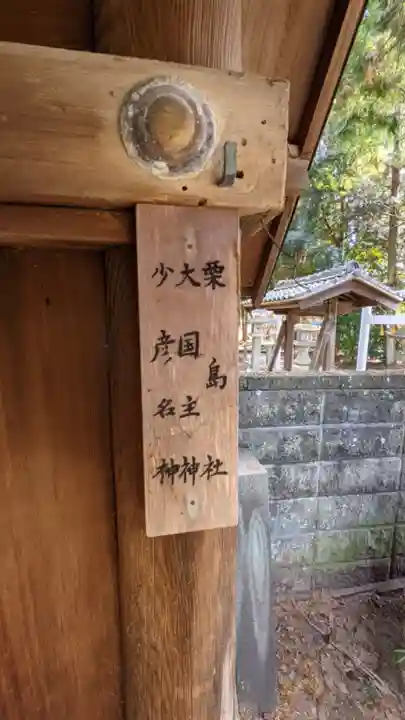 栗島社
大国主神
少彦名神